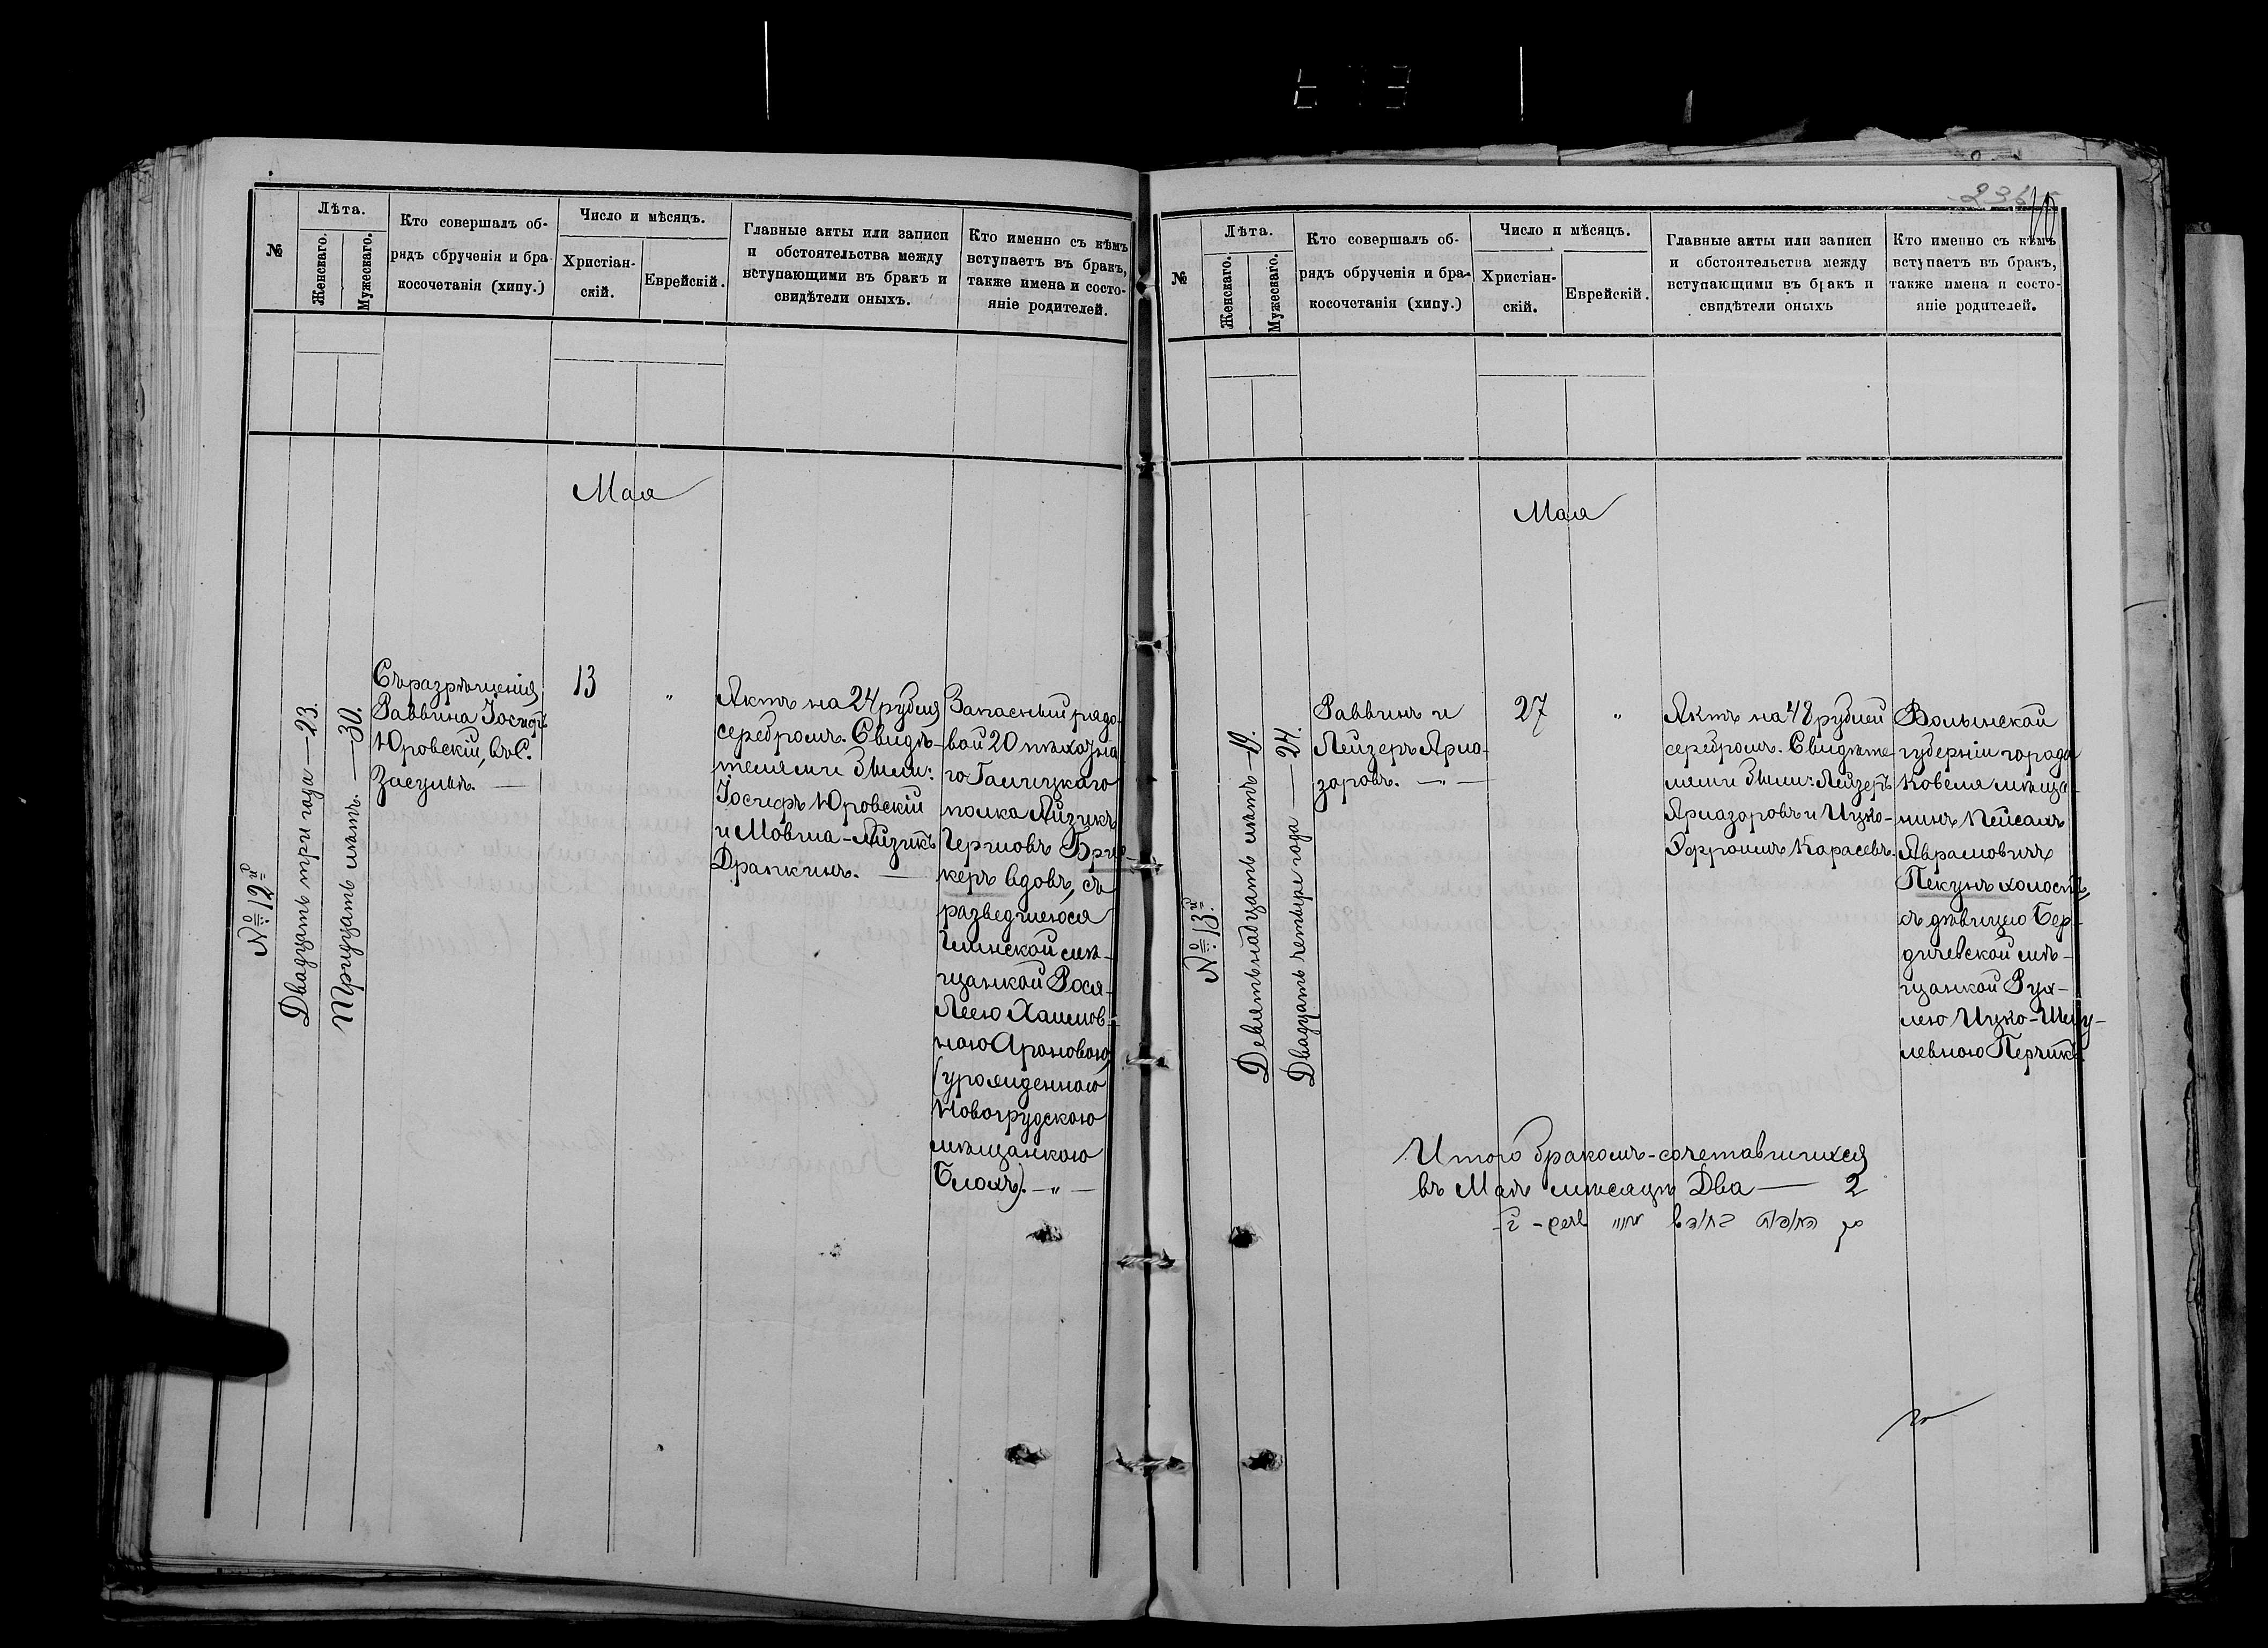 №
Лѣта.
Женскаго.
Мужескаго.
Кто совершалъ об-
рядъ обрученія и бра-
косочетанія (хипу.)
Число и мѣсяцъ.
Христіан-
скій.
Еврейскій.
Главные акты или записи
и обстоятельства между
вступающими въ бракъ и
свидѣтели оныхъ.
Кто именно съ кѣмъ
вступаетъ въ бракъ,
также имена и состо-
яніе родителей.
Мая
№ 12й
Двадцать три года — 23.
Тридцать лѣтъ. — 30.
Съ разрѣшенія
Раввина Іосифъ
Юровскій, въ С.
Засульѣ. —
13
"
Актъ на 24 рубля
серебромъ. Свидѣ-
телями были:
Іосифъ Юровскій
и Мовша-Айзикъ
Драпкинъ. —
Запасный рядо-
вой 20 пѣхотна-
го Галицкаго
полка Айзикъ
Гершовъ Бри-
керъ вдовъ, съ
разведшеюся
Минской мѣ-
щанкой Рося-
Леею Хаимов-
ною Ароновою
(урожденною
Новогрудскою
мѣщанкою
Блохъ). — " —
№
Лѣта.
Женскаго.
Мужескаго.
Кто совершалъ об-
рядъ обрученія и бра-
косочетанія (хипу.)
Число и мѣсяцъ.
Христіан-
скій.
Еврейскій.
Главные акты или записи
и обстоятельства между
вступающими въ бракъ и
свидѣтели оныхъ
Кто именно съ кѣмъ
вступаетъ въ бракъ,
также имена и состо-
яніе родителей.
Мая
№ 13й
Девятьнадцать лѣтъ — 19.
Двадцать четыре года — 24.
Раввинъ и
Лейзеръ Ярмо-
заровъ. — " —
27
"
Актъ на 48 рублей
серебромъ. Свидѣте-
лями были: Лейзеръ
Ярмазоровъ и Ицко-
Эфроимъ Карасевъ.
Волынской
губерніи города
Ковеля мѣща-
нинъ Пейсахъ
Аврамовичъ
Пекунъ холостъ,
съ дѣвицею Бер-
дичевской мѣ-
щанкой Рух-
лею Ицко-Шму-
левною Перчикъ.
Итого бракомъ-сочетавшихся
въ Маѣ мѣсяцѣ Два — 2